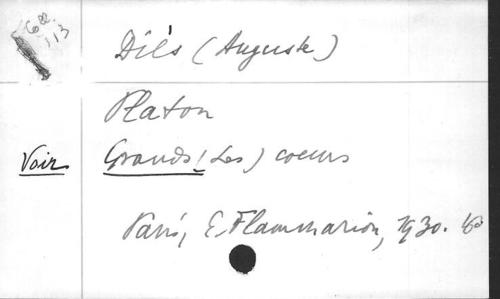 68.
113
Diès (Auguste)
Platon
Voir Grands (Les) coeurs
Paris, E. Flammarion, 1930. 16°